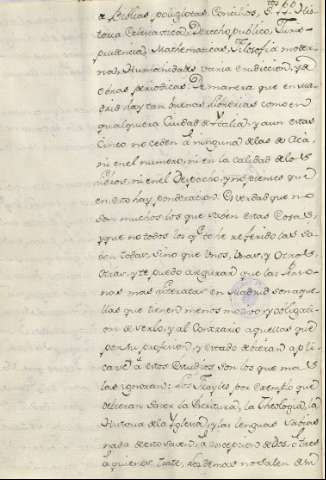 de Biblias poliglotas, Concilios, PP. His
toria Eclesiastica, Derecho publico, Juris
prudencia, Mathematicas, Filosofia moder
na, Humanidades varia erudicion, y de
obras periodicas. De manera que en Ma
drid hay tan buenas librerias como en
qualquiera Ciudad de Ytalia, y aun estas
cinco no ceden à ninguna de las de acà,
ni en el numero, ni en la calidad de los
libros, ni en el Despacho, y no pienses que
en esto hay ponderacion. Es verdad que no
son muchos los que saben estas cosas,
y que no todos los q.e te he referido las sa
ben todas, sino que unos, unas, y otros,
otras, y te puedo asegurar que las Perso
nas mas literatas en Madrid son aque
llas que tienen menos motivo y obligati
on de serlo, y al contrario aquellos que
por su profesion, y estado debieran apli
carse à estos Estudios son los que mas
las ignoran: los Frayles por exemplo que
debieran saber la Escritura, la Theologia, la
Historia de la Yglesia, y las lenguas sabias
nada de esto saben, à excepcion de dos, ò tres
a quienes trate, los demas no salen de su